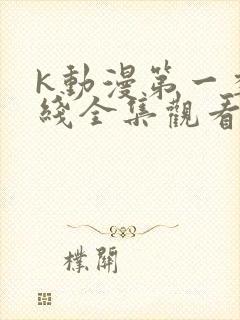 K動漫第一季
綫全集觀看
樸開